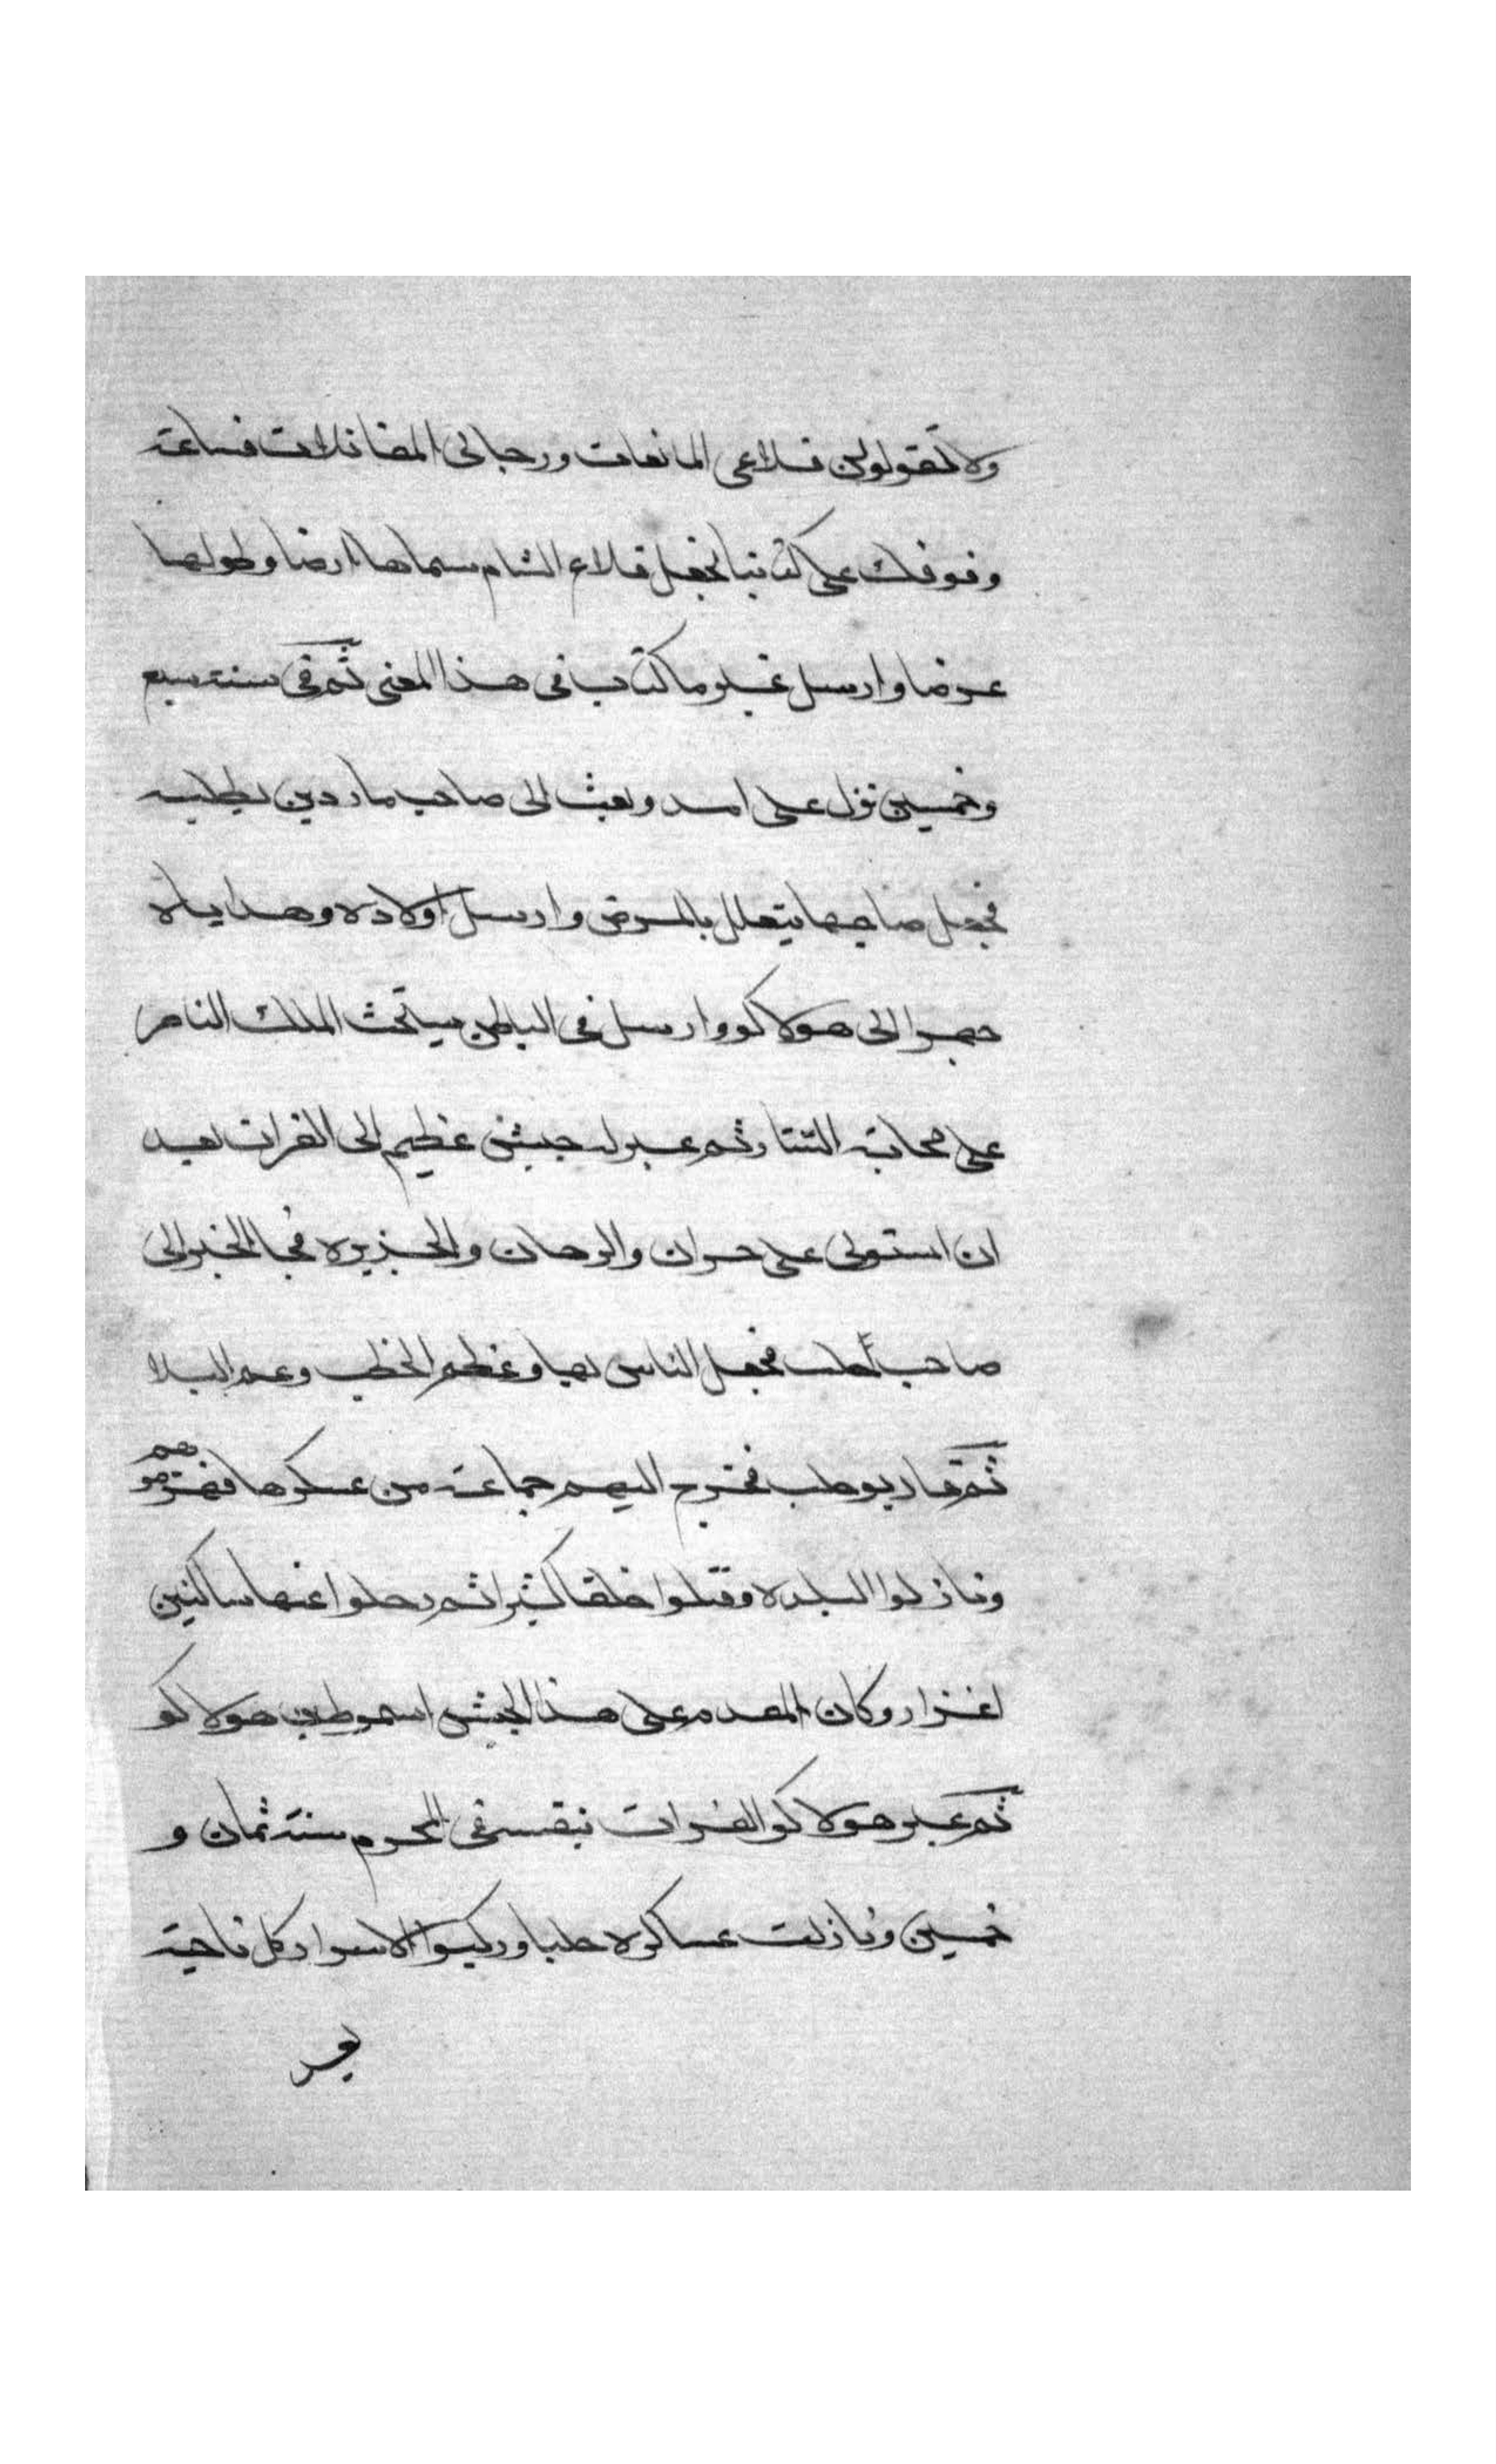 ولا تقولوا لمن قلاعي المانعات ورجالي المقاتلات فساعة
وقوفك على كتابنا نجعل قلاع الشام سماها ارضا وطولها
عرضا وارسل غير ما كتاب في هذا المعنى ثم في سنة سبع
وخمسين نزل على امد وبعث الى صاحب ماردين يطلبه
فجعل صاحبها يتعلل بالمرض وارسل اولاده وهداياه
جهرا الى هولاكو وارسل في الباطن يستحث الملك الناصر
على محاربة التتار ثم عبر له جيش عظيم الى الفرات بعد
ان استولى على حران والرهان والجزيره فجا الخبر الى
صاحب حلب فجعل الناس بها وعظم الخطب وعم البلا
ثم قاربو حلب فخرج اليهم جماعة من عسكرها فهزموهم
ونازلوا البلده وقتلوا خلقا كثيرا ثم رحلوا عنها سالكين
اعزاز وكان المقدم على هذا الجيش اسموط بن هولاكو
ثم عبر هولاكو الفرات بنفسه في المحرم سنة ثمان و
خمسين ونازلت عساكره حلبا وركبوا الاسوار كل ناحية